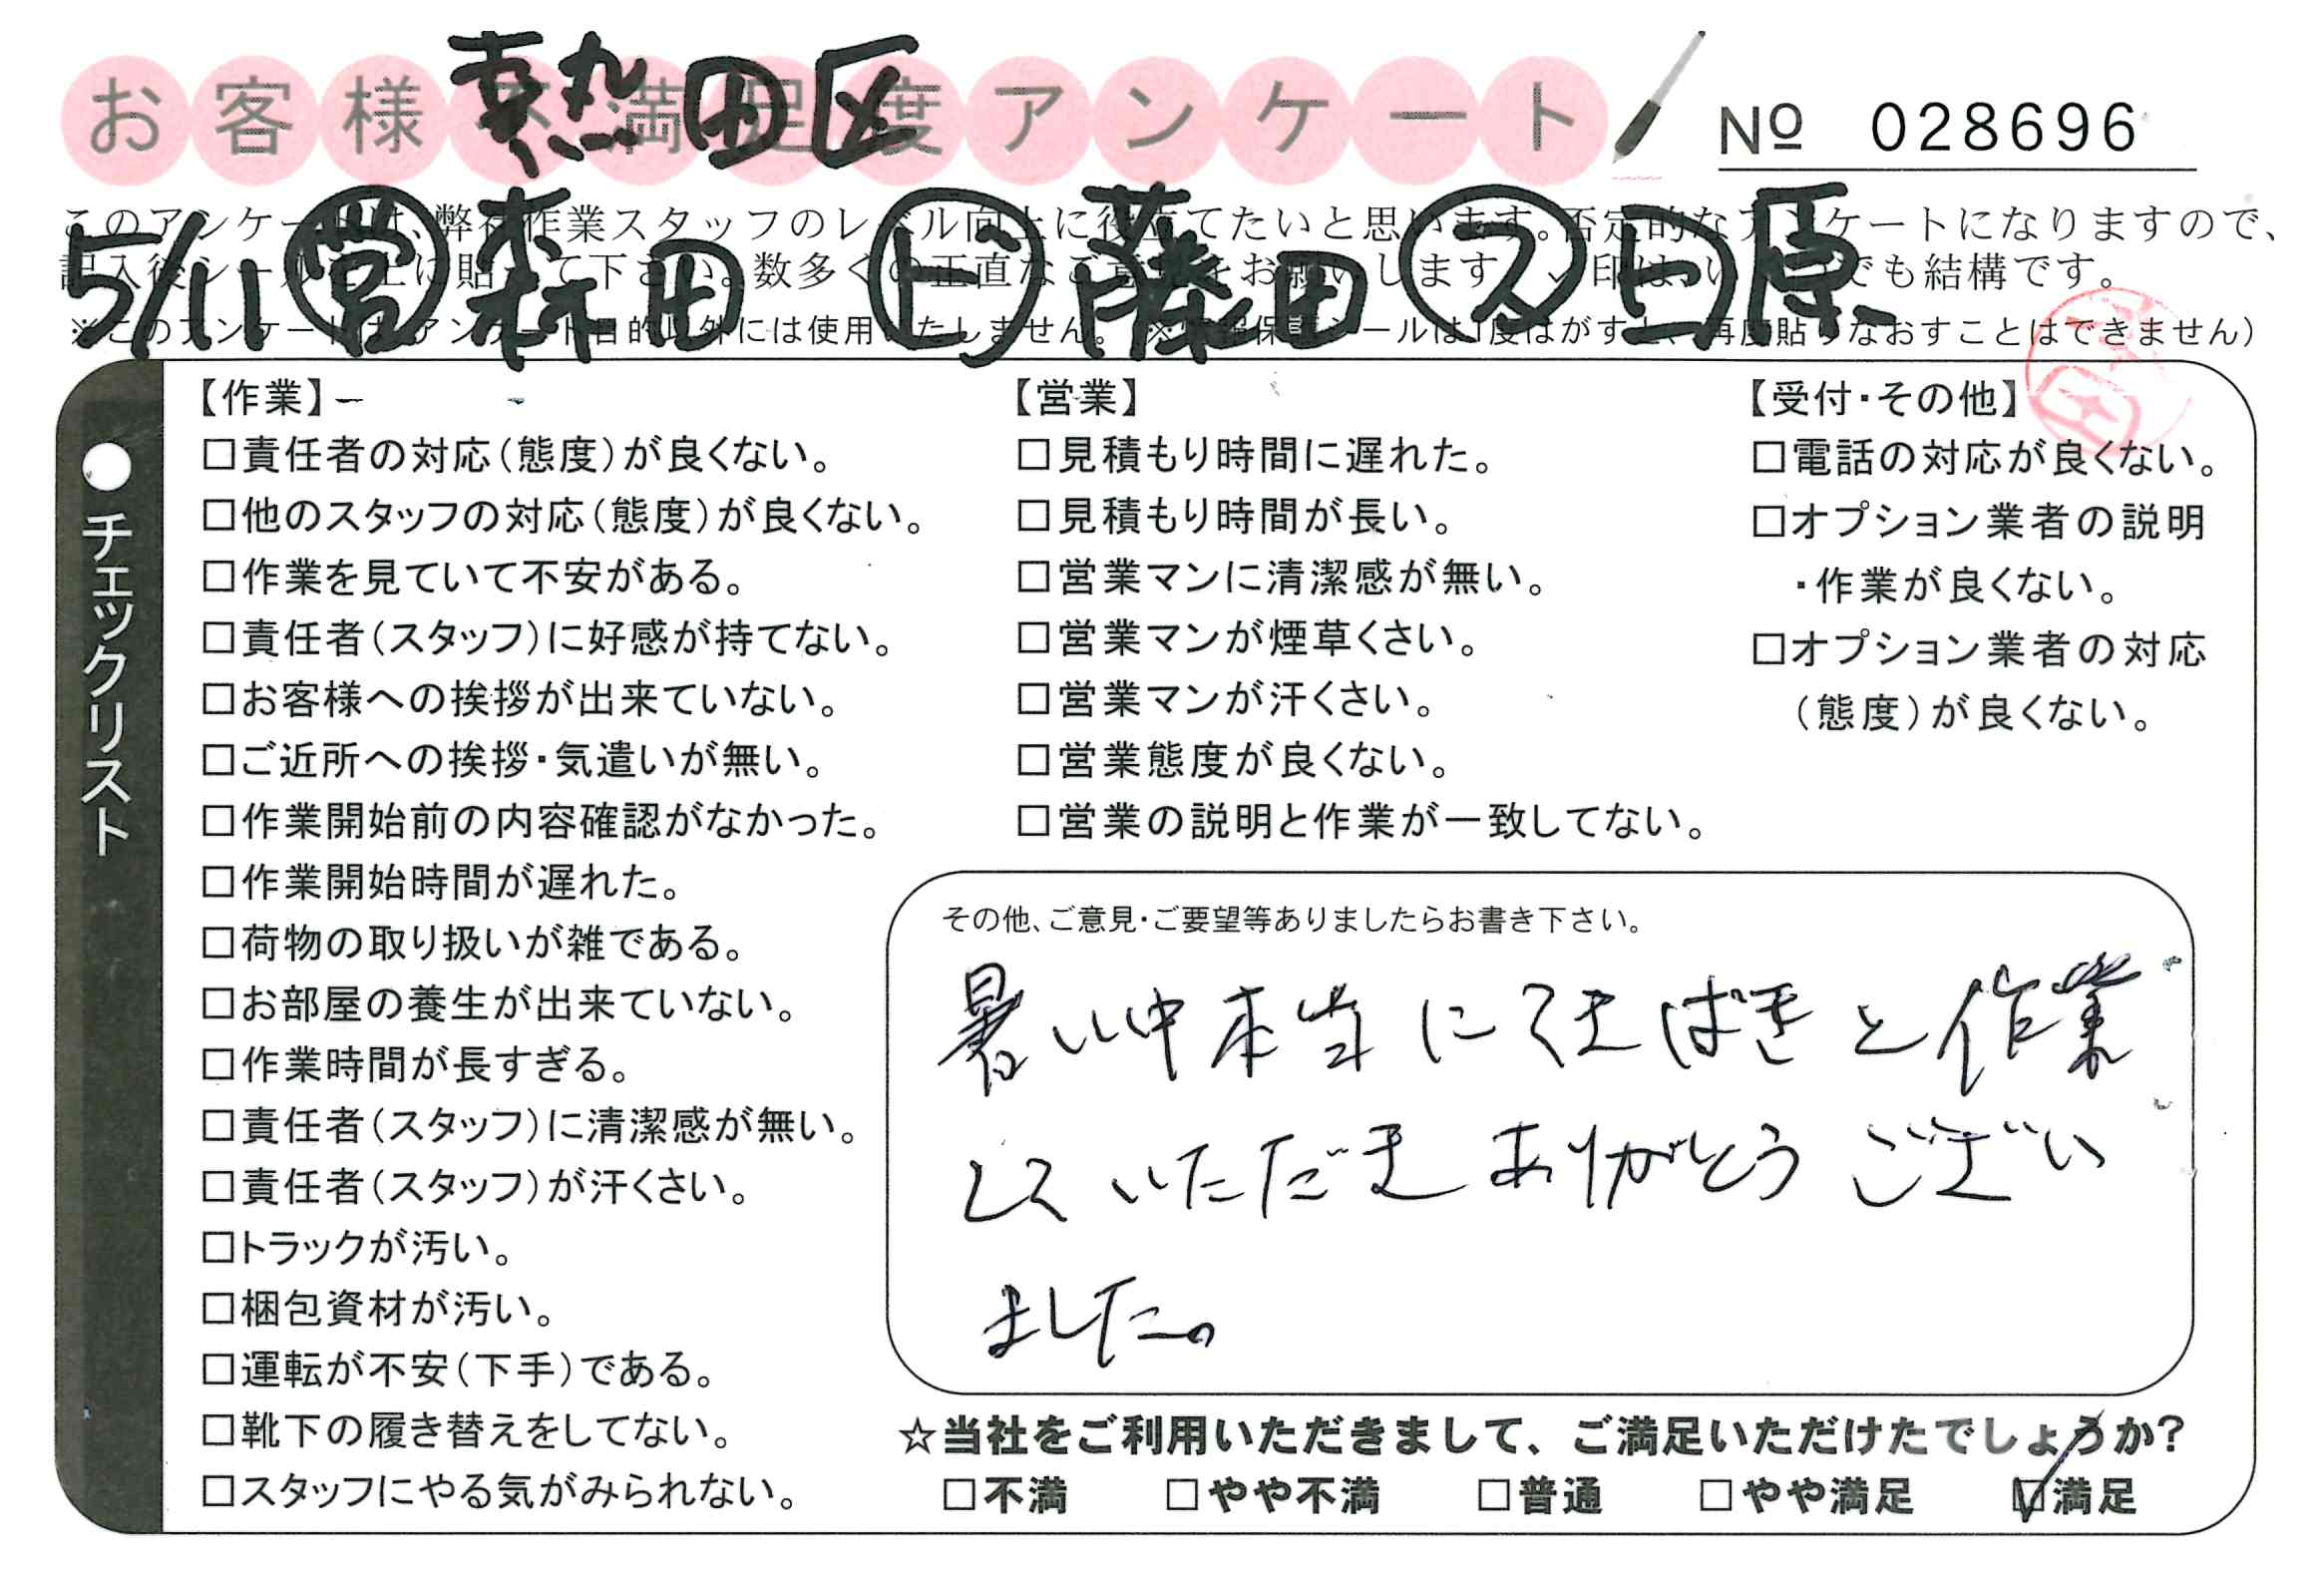 熱田区
お客様不満足度アンケート
№ 028696
5/11 営 森田 ビ 藤田 ス 白原
このアンケートは、弊社作業スタッフのレベル向上に役立てたいと思います。否定的なアンケートになりますので、
記入後シールを上に貼って下さい。数多くの正直なご意見をお願いします。✓印はいくつでも結構です。
※このアンケートは、アンケート目的以外には使用いたしません。 保護シールは1度はがすと、再度貼りなおすことはできません)
●チェックリスト
【作業】
□責任者の対応(態度)が良くない。
□他のスタッフの対応(態度)が良くない。
□作業を見ていて不安がある。
□責任者(スタッフ)に好感が持てない。
□お客様への挨拶が出来ていない。
□ご近所への挨拶・気遣いが無い。
□作業開始前の内容確認がなかった。
□作業開始時間が遅れた。
□荷物の取り扱いが雑である。
□お部屋の養生が出来ていない。
□作業時間が長すぎる。
□責任者(スタッフ)に清潔感が無い。
□責任者(スタッフ)が汗くさい。
□トラックが汚い。
□梱包資材が汚い。
□運転が不安(下手)である。
□靴下の履き替えをしてない。
□スタッフにやる気がみられない。
【営業】
□見積もり時間に遅れた。
□見積もり時間が長い。
□営業マンに清潔感が無い。
□営業マンが煙草くさい。
□営業マンが汗くさい。
□営業態度が良くない。
□営業の説明と作業が一致してない。
【受付・その他】
□電話の対応が良くない。
□オプション業者の説明
・作業が良くない。
□オプション業者の対応
(態度)が良くない。
その他、ご意見・ご要望等ありましたらお書き下さい。
暑い中本当にてきぱきと作業
していただきありがとうござい
ました。
☆当社をご利用いただきまして、ご満足いただけたでしょうか?
□不満 □やや不満 □普通 □やや満足 ☑満足